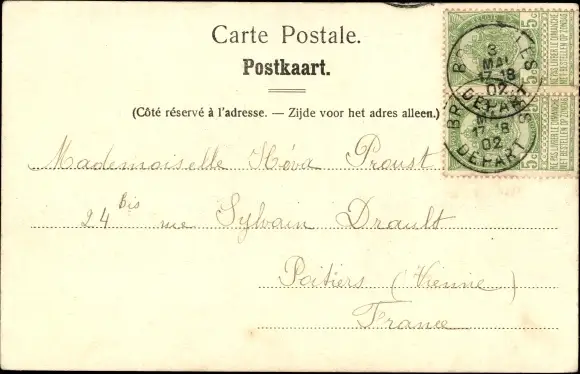 Carte Postale.
Postkaart.
(Côté réservé à l'adresse. — Zijde voor het adres alleen.)
Mademoiselle Héva Proust
24 bis rue Sylvain Drault
Poitiers (Vienne)
France
5c 5c
NE PAS LIVRER LE DIMANCHE
NIET BESTELLEN OP ZONDAG
3
MAI
17-18
02
DEPART
5c 5c
NE PAS LIVRER LE DIMANCHE
NIET BESTELLEN OP ZONDAG
02
DEPART